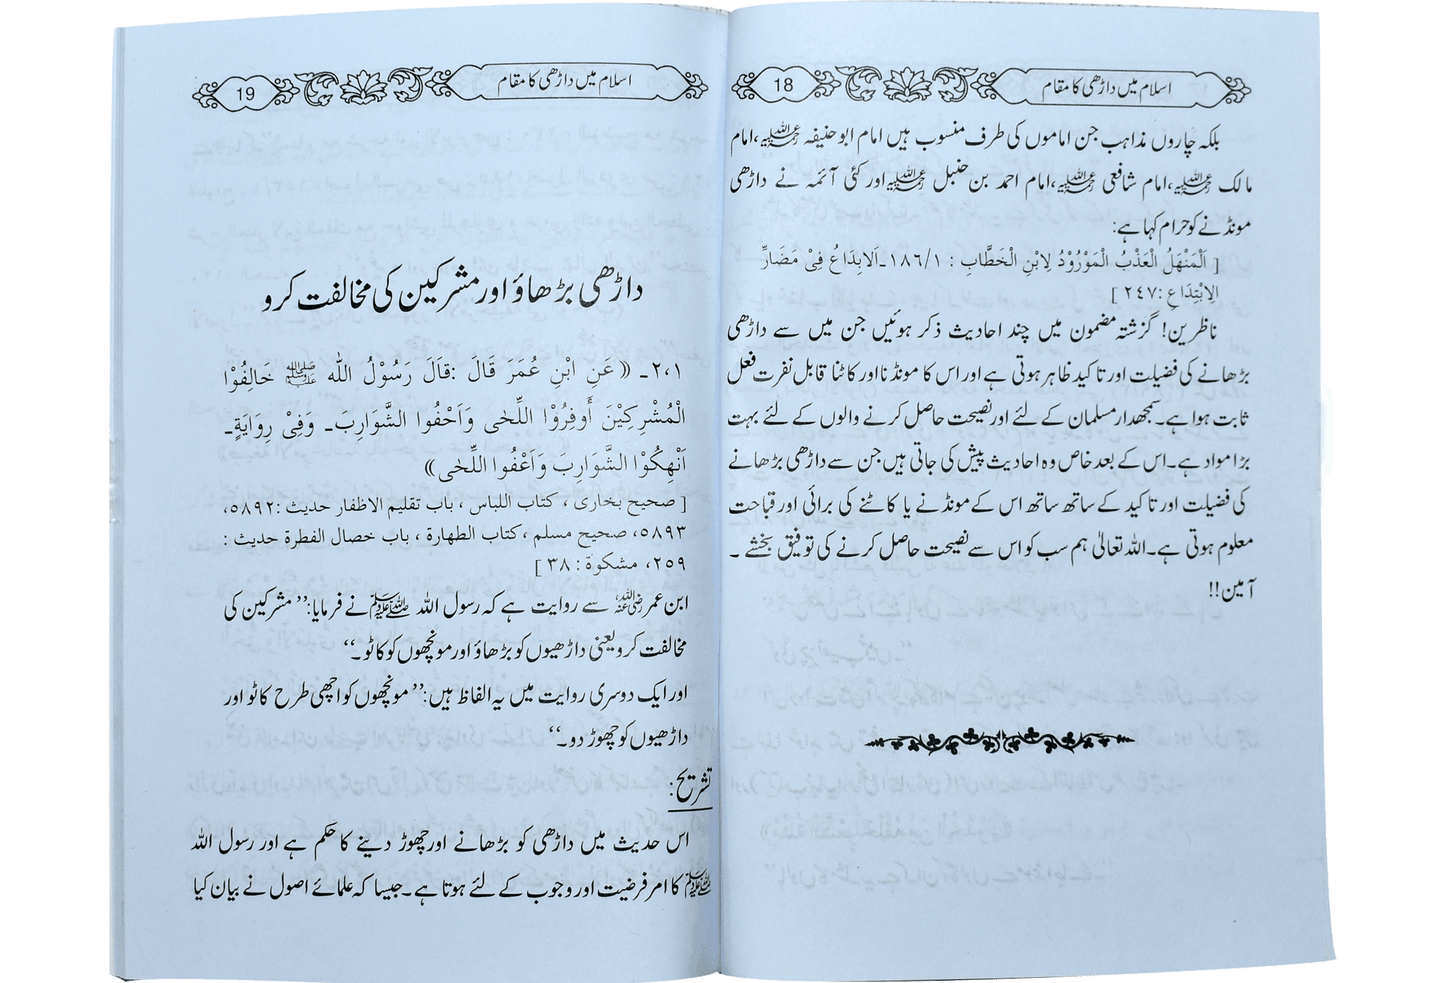 اسلام میں داڑھی کا مقام
18
بلکہ چاروں مذاہب جن اماموں کی طرف منسوب ہیں امام ابوحنیفہ رحمۃ اللہ علیہ، امام
مالک رحمۃ اللہ علیہ، امام شافعی رحمۃ اللہ علیہ، امام احمد بن حنبل رحمۃ اللہ علیہ اور کئی آئمہ نے داڑھی
مونڈنے کو حرام کہا ہے:
[ اَلْمَنْهَلُ الْعَذْبُ الْمَوْرُوْدُ لِابْنِ الْخَطَّابِ : ١٨٦/١۔ اَلابِدَاعُ فِیْ مَضَارِّ
الِابْتِدَاعِ : ٢٤٧ ]
ناظرین! گزشتہ مضمون میں چند احادیث ذکر ہوئیں جن میں سے داڑھی
بڑھانے کی فضیلت اور تاکید ظاہر ہوتی ہے اور اس کا مونڈنا اور کاٹنا قابل نفرت فعل
ثابت ہوا ہے۔ سمجھدار مسلمان کے لئے اور نصیحت حاصل کرنے والوں کے لئے بہت
بڑا مواد ہے۔ اس کے بعد خاص وہ احادیث پیش کی جاتی ہیں جن سے داڑھی بڑھانے
کی فضیلت اور تاکید کے ساتھ ساتھ اس کے مونڈنے یا کاٹنے کی برائی اور قباحت
معلوم ہوتی ہے۔ اللہ تعالیٰ ہم سب کو اس سے نصیحت حاصل کرنے کی توفیق بخشے ۔
آمین!!
اسلام میں داڑھی کا مقام
19
داڑھی بڑھاؤ اور مشرکین کی مخالفت کرو
٢،١۔ ﴿عَنِ ابْنِ عُمَرَ قَالَ :قَالَ رَسُوْلُ اللّٰه ﷺ خَالِفُوْا
الْمُشْرِكِيْنَ أَوفِرُوْا اللِّحٰی وَاَحْفُوا الشَّوَارِبَ۔ وَفِیْ رِوَايَةٍ۔
اَنْهِكُوْا الشَّوَارِبَ وَاَعْفُوا اللِّحٰی﴾
[ صحیح بخاری ، کتاب اللباس ، باب تقلیم الاظفار حدیث :٥٨٩٢،
٥٨٩٣، صحیح مسلم ، کتاب الطهارة ، باب خصال الفطرة حدیث :
٢٥٩، مشکوة : ٣٨ ]
ابن عمر رضی اللہ عنہ سے روایت ہے کہ رسول اللہ ﷺ نے فرمایا: ’’مشرکین کی
مخالفت کرو یعنی داڑھیوں کو بڑھاؤ اور مونچھوں کو کاٹو۔‘‘
اور ایک دوسری روایت میں یہ الفاظ ہیں: ’’مونچھوں کو اچھی طرح کاٹو اور
داڑھیوں کو چھوڑ دو۔‘‘
تشریح:
اس حدیث میں داڑھی کو بڑھانے اور چھوڑ دینے کا حکم ہے اور رسول اللہ
ﷺ کا امر فرضیت اور وجوب کے لئے ہوتا ہے۔ جیسا کہ علمائے اصول نے بیان کیا